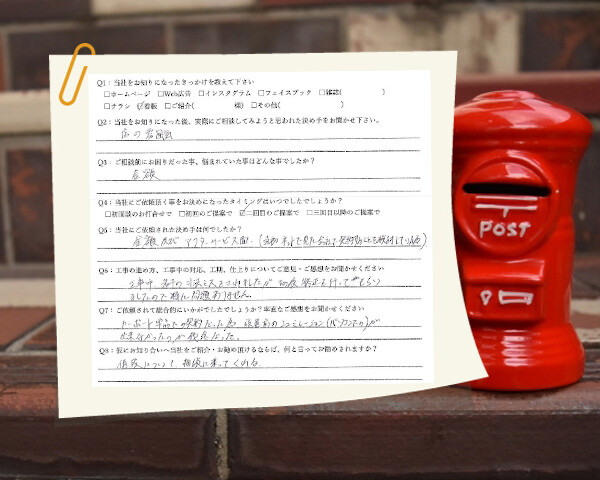 Q1：当社をお知りになったきっかけを教えて下さい
□ホームページ □Web広告 □インスタグラム □フェイスブック □雑誌( )
□チラシ ☑看板 □ご紹介( 様) □その他( )
Q2：当社をお知りになった後、実際にご相談してみようと思われた決め手をお聞かせ下さい。
店の雰囲気
Q3：ご相談前にお困りだった事、悩まれていた事はどんな事でしたか？
金額
Q4：当社にご依頼頂く事をお決めになったタイミングはいつでしたでしょうか？
□初面談のお打合せで □初回のご提案で ☑二回目のご提案で □三回目以降のご提案で
Q5：当社にご依頼された決め手は何でしたか？
金額 アフターサービス面
Q6：工事の進め方、工事中の対応、工期、仕上りについてご意見・ご感想をお聞かせください
工事中
ましたので特に問題ありません。
Q7：ご依頼されて総合的にいかがでしたでしょうか？率直なご感想をお聞かせください
シュミレーション(パソコンでの)が
出来なかったのが残念だった。
Q8：仮にお知り合いへ当社をご紹介・お勧め頂けるならば、何と言ってお勧めされますか？
相談に乗ってくれる
POST